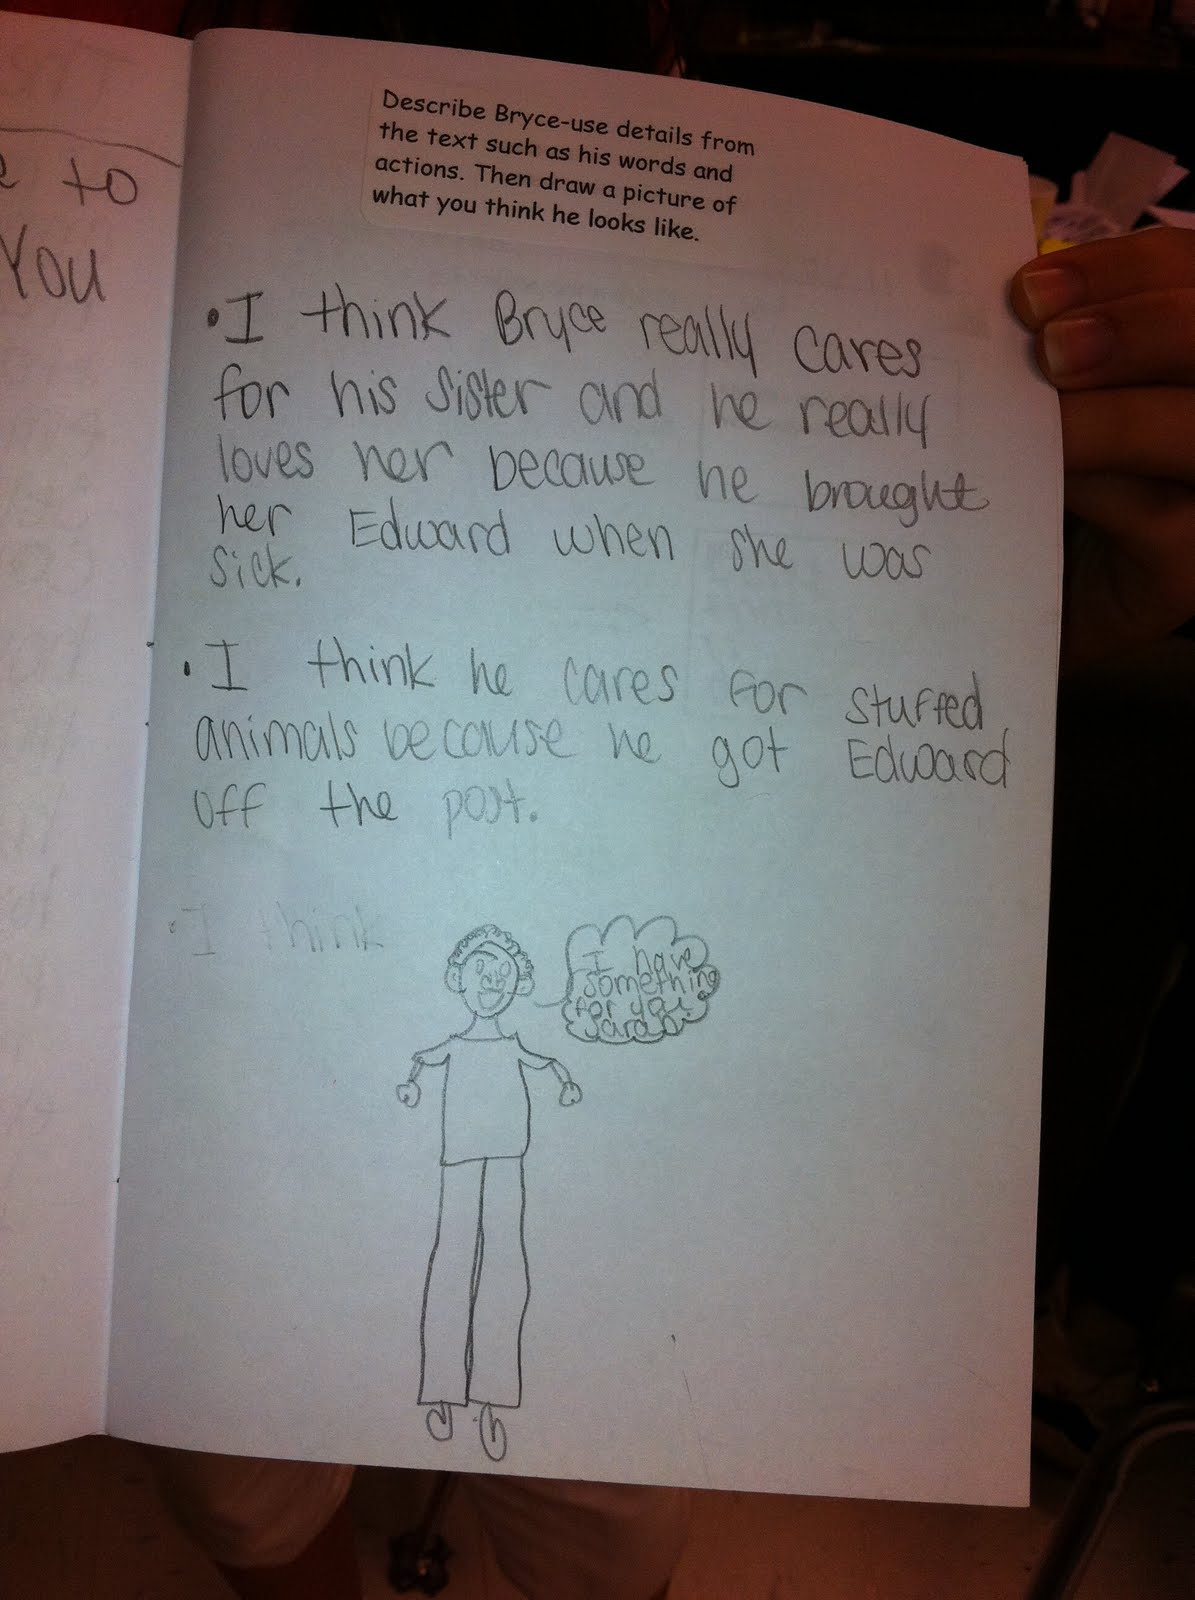 e to
You
Describe Bryce-use details from
the text such as his words and
actions. Then draw a picture of
what you think he looks like.
• I think Bryce really cares
for his sister and he really
loves her because he brought
her Edward when she was
sick.
• I think he cares for stuffed
animals because he got Edward
off the post.
• I think
I have
something
for you
Sarah